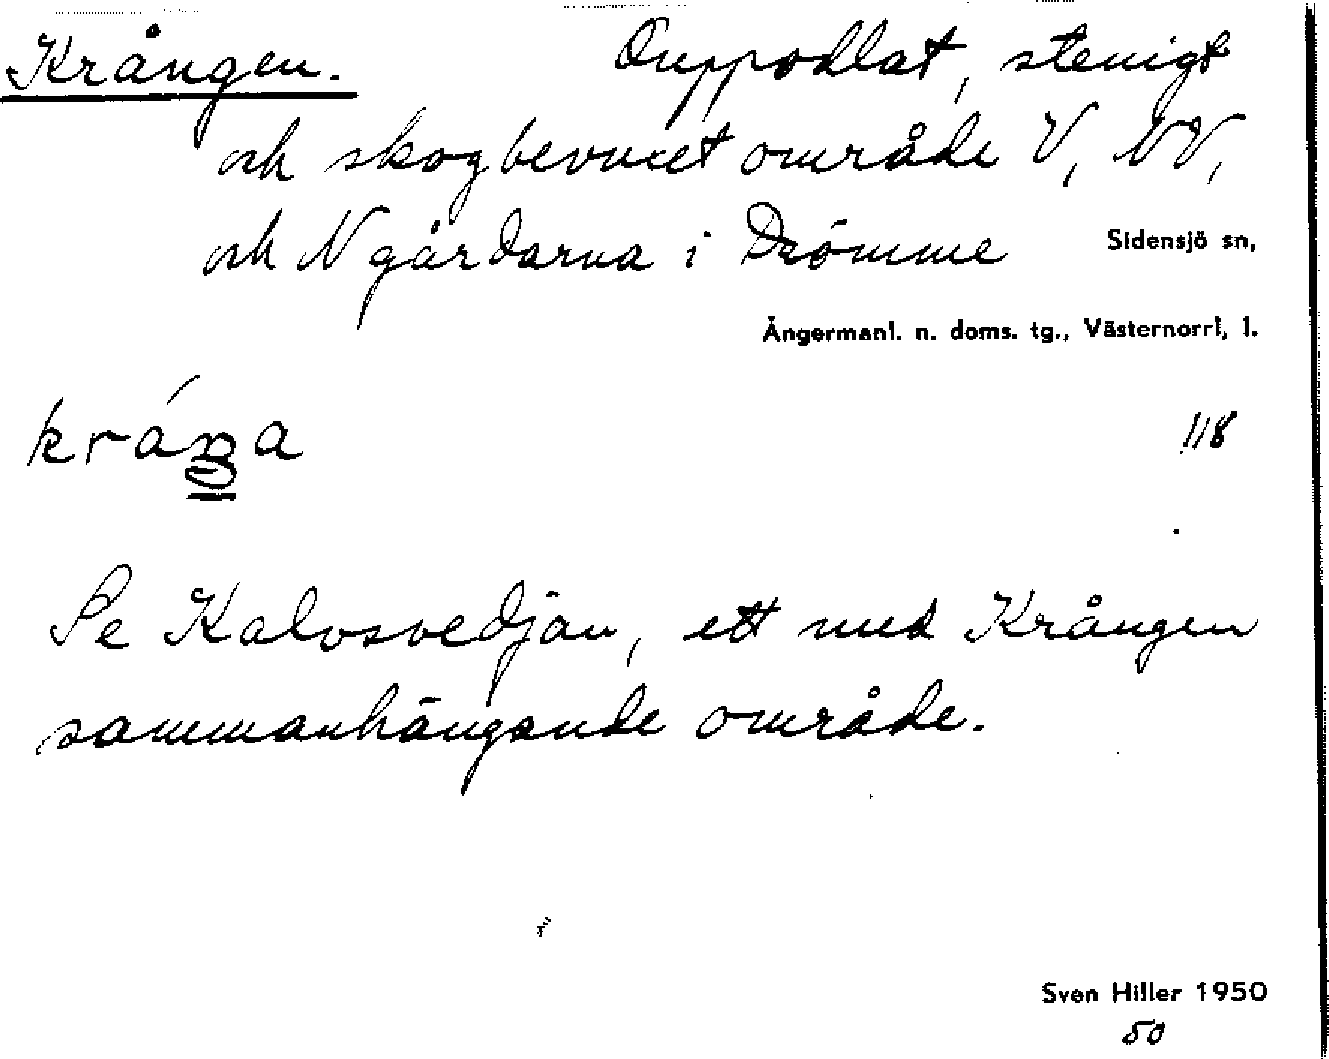 Krången. Ouppodlat, stenigt
och skogbevuxet område V, NV,
och N gårdarna i Drömme Sidensjö sn,
Ångermanl. n. doms. tg., Västernorrl, l.
118
Se Kalvsvedjan, ett med Krången
sammanhängande område.
Sven Hiller 1950
50